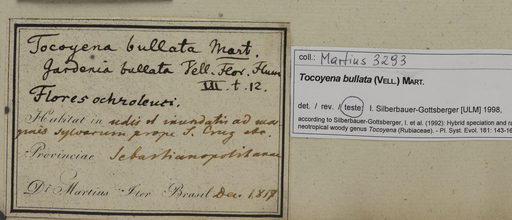 Tocoyena bullata Mart.
Gardenia bullata Vell. Flor. Flum
III. t. 12.
Flores ochroleuci.
Habitat in udis et inundatis ad mar
gines sylvarum prope S. Cruz etc.
Provinciae Sebastianopolitanae
Dr. Martius Iter Brasil Dec. 1817
coll.: Martius 3293
Tocoyena bullata (VELL.) MART.
det. / rev. / teste: I. Silberbauer-Gottsberger [ULM] 1998,
according to Silberbauer-Gottsberger, I. et al. (1992): Hybrid speciation and ra
neotropical woody genus Tocoyena (Rubiaceae). - Pl. Syst. Evol. 181: 143-16